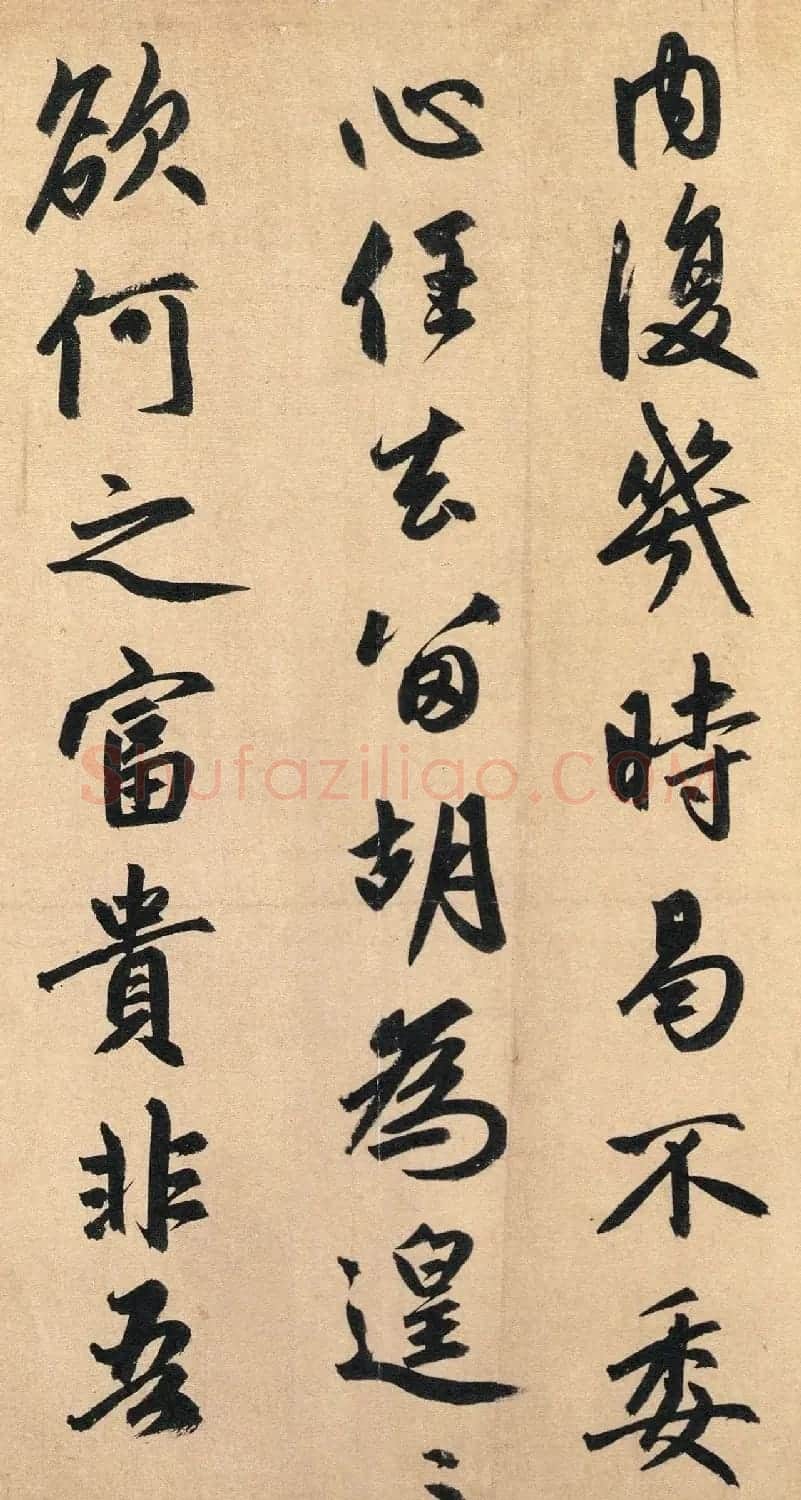 内復幾時曷不委
心任去留胡為遑〻
欲何之富貴非吾
Shufaziliao.COM